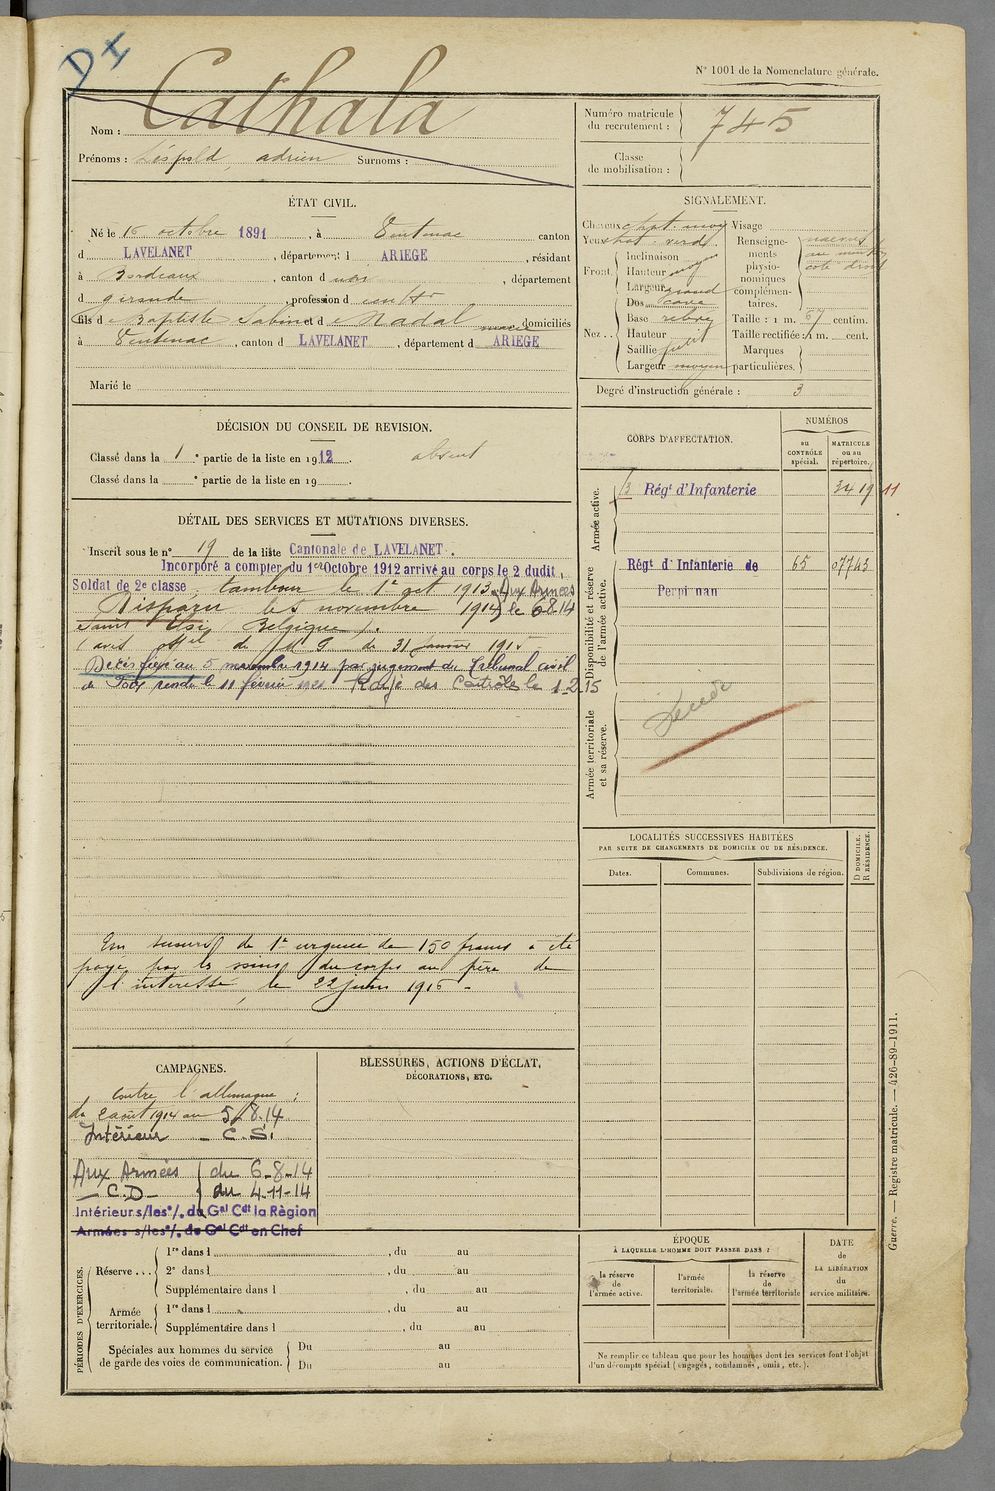 DI
N° 1001 de la Nomenclature générale.
Nom : Cathala
Prénoms : Léopold, adrien Surnoms :
Numéro matricule du recrutement : 745
Classe de mobilisation :
ÉTAT CIVIL.
Né le 16 octobre 1891, à Ventenac canton
d LAVELANET, département d ARIEGE, résidant
à Bordeaux, canton d udit, département
d gironde, profession d
fils de Baptiste Sabin et de Nadal domiciliés
à Ventenac, canton d LAVELANET, département d ARIEGE
Marié le
SIGNALEMENT.
Cheveux chat. moy Visage
Yeux chat. verd. Renseignements physionomiques complémentaires.
naevus au menton coté droit
Front. Inclinaison
Hauteur moyen
Largeur grand
Nez .. Dos cave
Base relevé
Hauteur
Saillie petit
Largeur moyen
Taille : 1 m. 67 centim.
Taille rectifiée : 1 m. cent.
Marques particulières.
Degré d'instruction générale : 3
DÉCISION DU CONSEIL DE REVISION.
Classé dans la 1re partie de la liste en 1912. absent
Classé dans la e partie de la liste en 19 .
DÉTAIL DES SERVICES ET MUTATIONS DIVERSES.
Inscrit sous le n° 19 de la liste Cantonale de LAVELANET.
Incorporé a compter du 1er Octobre 1912 arrivé au corps le 2 dudit,
Soldat de 2e classe. tambour le 1er oct 1913. Aux Armées
Disparu le 5 novembre 1914 le 6.8.14
Belgique).
(avis off[iel] de M G du 31 janvier 1915
Décès fixé au 5 novembre 1914 par jugement du Tribunal civil
de Foix rendu le 11 février 1921 Rayé des Contrôles le 1.2.15
Un secours de 1re urgence de 150 francs a été
payé par les soins du corps au père de
l'intéressé le 22 juin 1916 -
CORPS D'AFFECTATION.
NUMÉROS
au CONTRÔLE spécial.
MATRICULE ou au répertoire.
Armée active.
Régt d'Infanterie 3419 11
Disponibilité et réserve de l'armée active.
Régt d'Infanterie de Perpignan 65 07743
Armée territoriale et sa réserve.
LOCALITÉS SUCCESSIVES HABITÉES
PAR SUITE DE CHANGEMENTS DE DOMICILE OU DE RÉSIDENCE.
Dates. Communes. Subdivisions de région. D DOMICILE. R RÉSIDENCE.
CAMPAGNES.
Contre l'allemagne :
du 2 août 1914 au 5/8.14
Intérieur - C.S.
Aux Armées du 6-8-14
- C.D - au 4-11-14
Intérieur s/les o/. du Gal Cdt la Règion
Armées s/les o/. du Gal Cdt en Chef
BLESSURES, ACTIONS D'ÉCLAT,
DÉCORATIONS, ETC.
PÉRIODES D'EXERCICES.
Réserve ... 1re dans l , du au
2e dans l , du au
Supplémentaire dans l , du au
Armée territoriale. 1re dans l , du au
Supplémentaire dans l , du au
Spéciales aux hommes du service de garde des voies de communication. Du au
Du au
ÉPOQUE
À LAQUELLE L'HOMME DOIT PASSER DANS :
la réserve de l'armée active.
l'armée territoriale.
la réserve de l'armée territoriale
DATE de LA LIBÉRATION du service militaire.
Ne remplir ce tableau que pour les hommes dont les services font l'objet
d'un décompte spécial (engagés, condamnés, omis, etc.).
Guerre. — Registre matricule. — 426-89-1911.